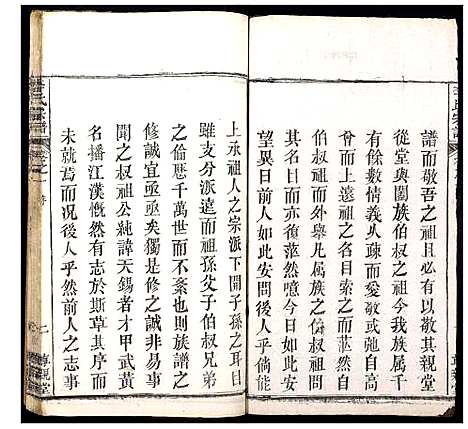 譜而敬吾之祖且必有以敬其親堂
從堂與闔族伯叔之祖今我族屬千
有餘數情義火疎而愛敬或弛自高
曾而上遠祖之名目索之而茫然自
伯叔祖而外舉凡属族之倫叙茫然
名目一無所知前人如此安問後人乎倘能
望異日
上承祖人之宗派下開子孫之耳目
雖支分派遠而祖孫父子伯叔兄弟
之倫歷千萬世而不紊也則族譜之
修誠宜亟亟矣獨是修之誠非易事
聞之叔祖公純諱天錫者才甲武黃
名播江漢慨然有志於斯草其序而
未就焉而況後人乎然前人之志事
氏宗譜
尊親堂